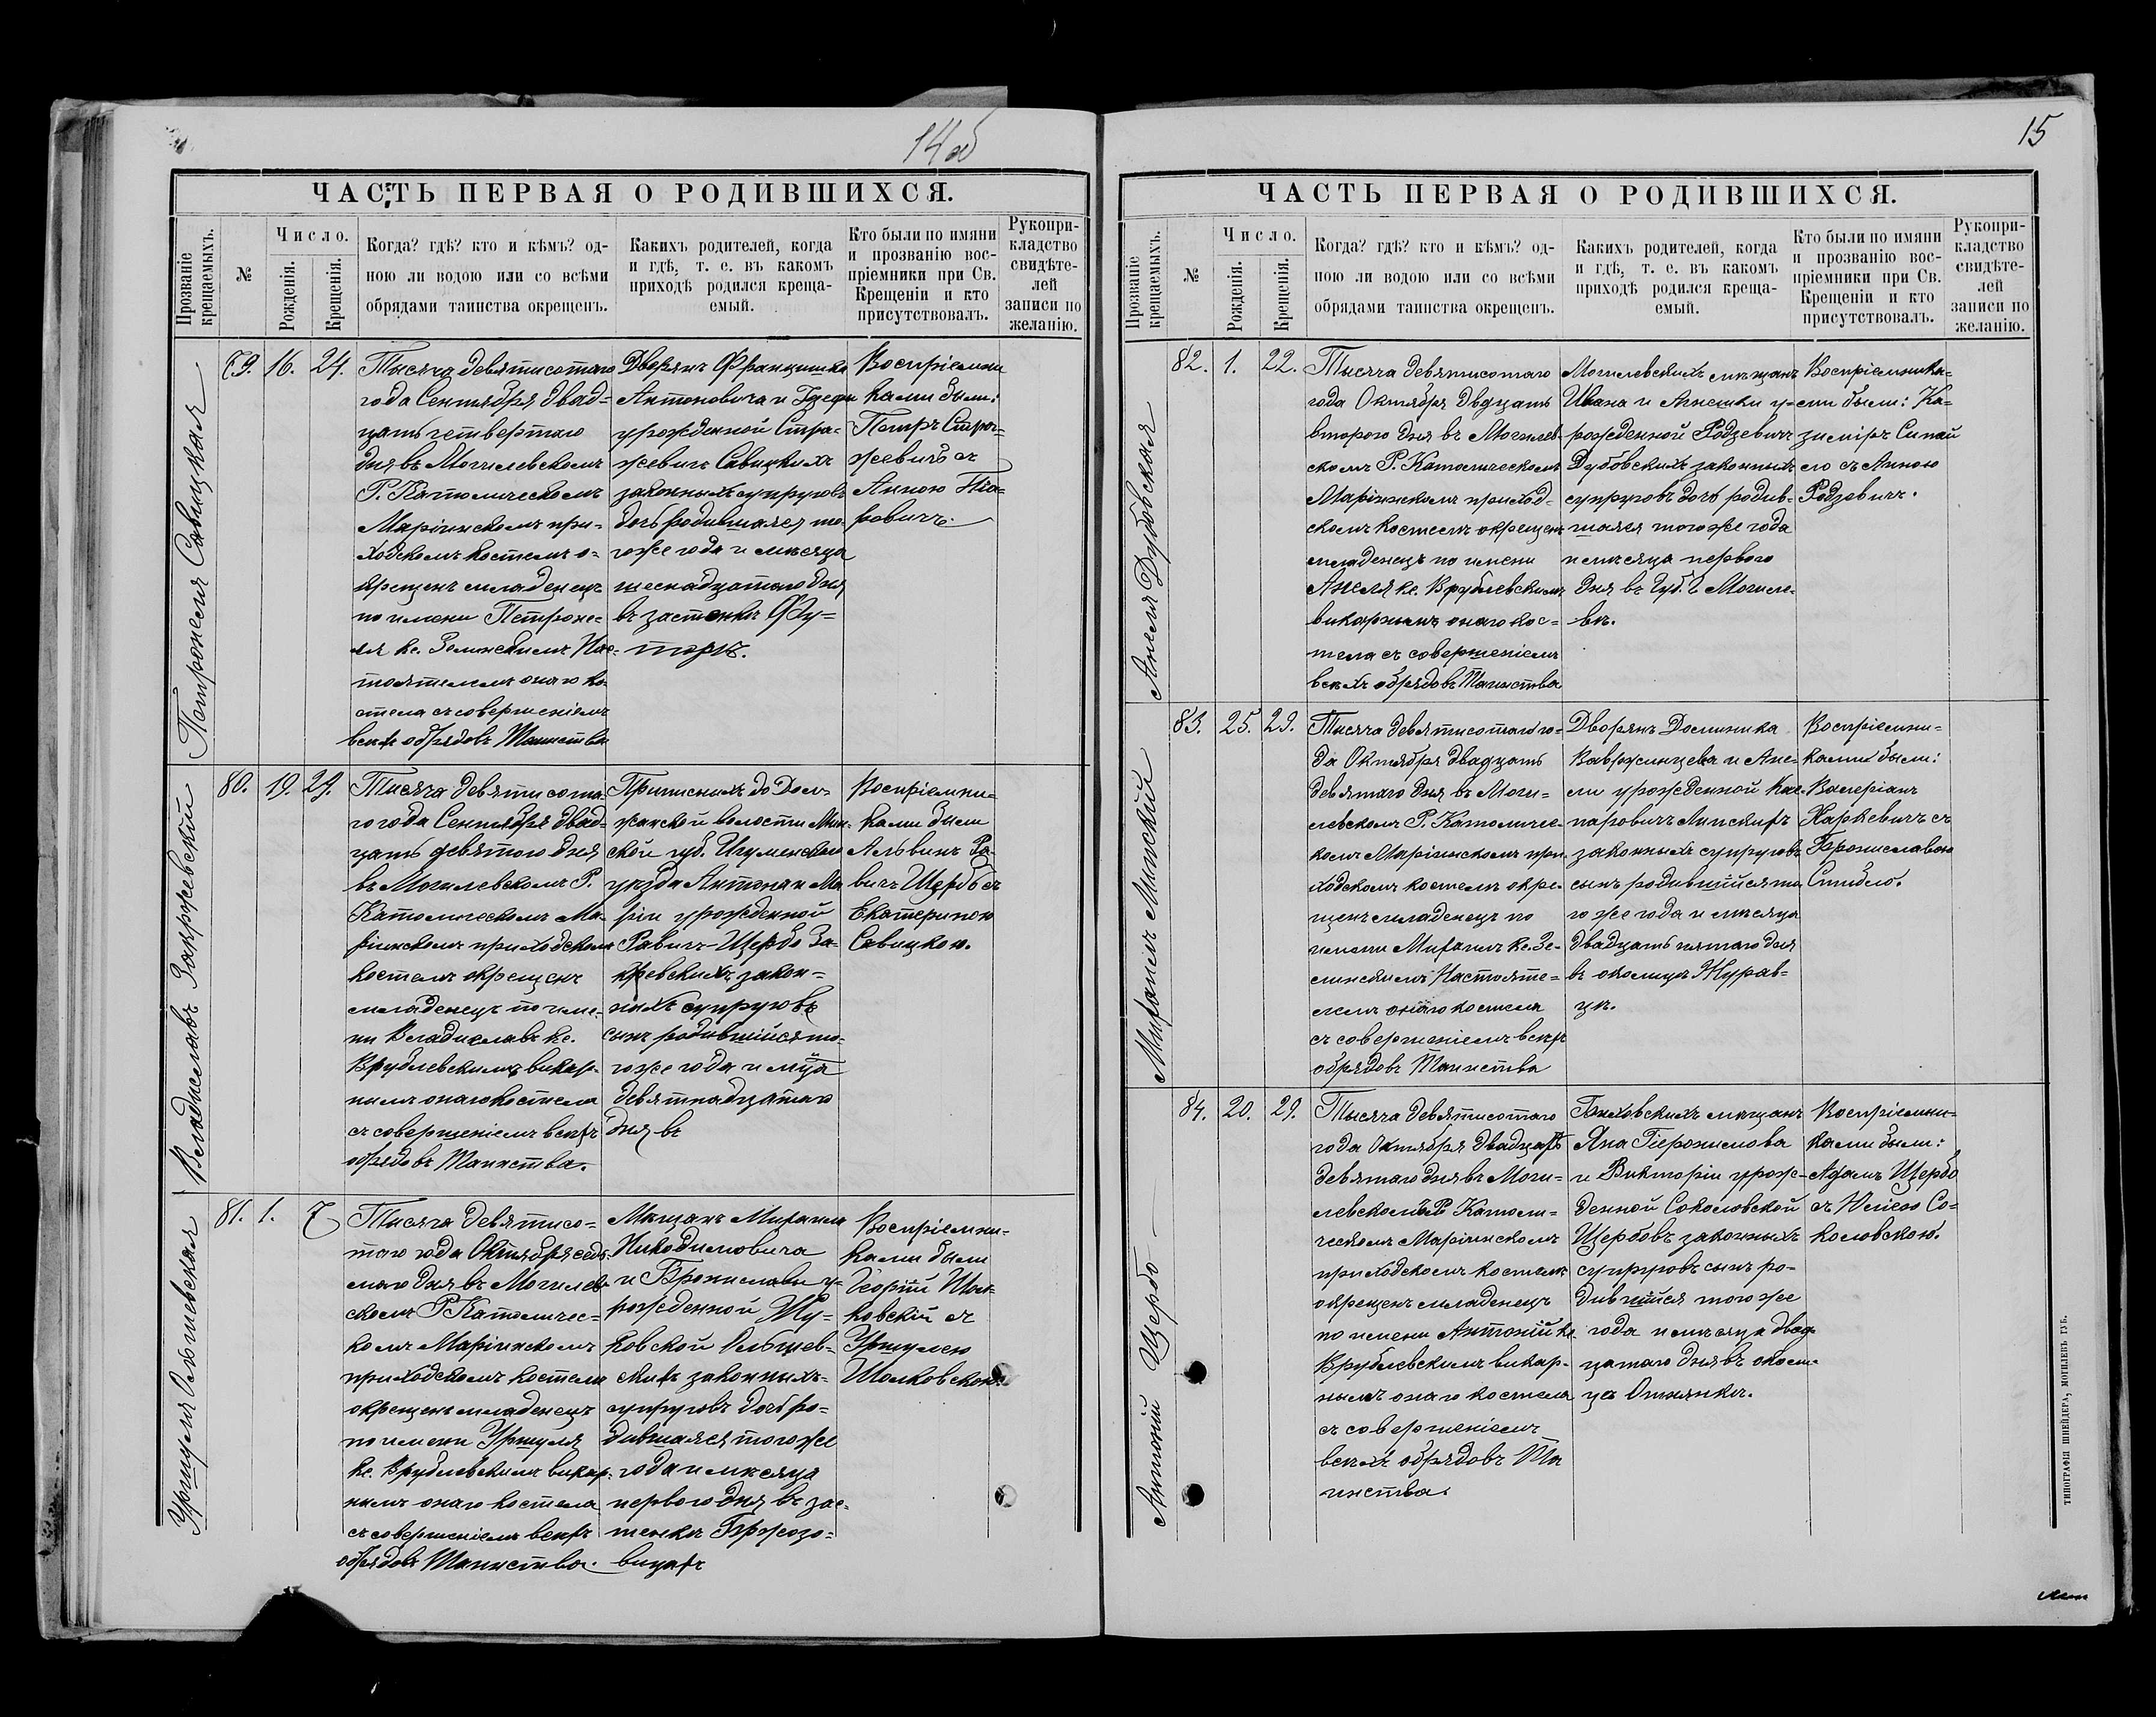 14 об
ЧАСТЬ ПЕРВАЯ О РОДИВШИХСЯ.
Прозваніе крещаемыхъ.
№
Число.
Рожденія.
Крещенія.
Когда? гдѣ? кто и кѣмъ? од-
ною ли водою или со всѣми
обрядами таинства окрещенъ.
Какихъ родителей, когда
и гдѣ, т. е. въ какомъ
приходѣ родился креща-
емый.
Кто были по имяни
и прозванію вос-
пріемники при Св.
Крещеніи и кто
присутствовалъ.
Рукопри-
кладство
свидѣте-
лей
записи по
желанію.
Петронеля Савицкая
79. 16. 24.
Тысяча девятисотаго
года Сентября двад=
цать четвертаго
дня въ Могилевскомъ
Р. Католическомъ
Маріинскомъ при-
ходскомъ костелѣ о-
крещенъ младенецъ
по имени Петроне-
ля кс. Зелинскимъ Нас-
тоятелемъ онаго ко-
стела съ совершеніемъ
всѣхъ обрядовъ Таинства
Дворянъ Францишка
Антоновича и Юзефы
урожденной Стра-
жевичъ Савицкихъ
законныхъ супруговъ
дочь родившаяся то-
гоже года и мѣсяца
шеснадцатаго дня
въ застенкѣ Фу-
торы.
Воспріемни
ками были:
Петръ Стра-
жевичъ съ
Анною
Владиславъ Закржевскій
80. 19. 29.
Тысяча девятисота-
го года Сентября двад-
цать девятаго дня
въ Могилевскомъ Р.
Католическомъ Ма-
ріинскомъ приходскомъ
костелѣ окрещенъ
младенецъ по име-
ни Владиславъ кс.
Врублевскимъ викар-
нымъ онаго костела
съ совершеніемъ всѣхъ
обрядовъ Таинства.
Приписныхъ до
волости Мин-
ской губ. Игуменскаго
уѣзда Антона и Ма
ріи урожденной
Равичъ-Щербо За-
кревскихъ закон-
ныхъ супруговъ
сынъ родившійся то-
гоже года и мѣсяца
девятнадцатаго
дня въ
Воспріемни-
ками были
Альбинъ Ра-
вичъ Щербо съ
Екатериною
Савицкою.
Уршуля Ольшевская
81. 1. 7
Тысяча девятисо-
таго года Октября седь-
маго дня въ Могилев-
скомъ Р Католичес-
комъ Маріинскомъ
приходскомъ костелѣ
окрещенъ младенецъ
по имени Уршуля
кс. Врублевскимъ викар-
нымъ онаго костела
съ совершеніемъ всѣхъ
обрядовъ Таинства.
Мѣщанъ Михаила
Никодимовича
и Брониславы у-
рожденной Жу-
ковской Ольшев-
скихъ законныхъ
супруговъ дочь ро-
дившаяся тогоже
года и мѣсяца
первого дня въ зас-
тенкѣ Бржозо-
вицахъ
Воспріемни-
ками были
съ
Уршулею
15
ЧАСТЬ ПЕРВАЯ О РОДИВШИХСЯ.
Прозваніе крещаемыхъ.
№
Число.
Рожденія.
Крещенія.
Когда? гдѣ? кто и кѣмъ? од-
ною ли водою или со всѣми
обрядами таинства окрещенъ.
Какихъ родителей, когда
и гдѣ, т. е. въ какомъ
приходѣ родился креща-
емый.
Кто были по имяни
и прозванію вос-
пріемники при Св.
Крещеніи и кто
присутствовалъ.
Рукопри-
кладство
свидѣте-
лей
записи по
желанію.
Анеля Дубовская
82. 1. 22.
Тысяча девятисотаго
года Октября двдцать
второго дня въ Могилев-
скомъ Р. Католическомъ
Маріинскомъ приход-
скомъ костелѣ окрещенъ
младенецъ по имени
Анеля кс. Врублевскимъ
викарнымъ онаго кос-
тела съ совершеніемъ
всѣхъ обрядовъ Таинства
Могилевскихъ мѣщанъ
Ивана и Агнешки у-
рожденной Родзевичъ
Дубовскихъ законныхъ
супруговъ дочь родив-
шаяся того же года
и мѣсяца первого
дня въ Губ. г. Могиле-
вѣ.
Воспріемника-
ми были: Ка-
зиміръ
съ Анною
Родзевичъ.
Михаилъ Липскій
83. 25. 29.
Тысяча девятисотаго го-
да Октября двадцать
девятаго дня въ Моги-
левскомъ Р. Католичес-
комъ Маріинскомъ при-
ходскомъ костелѣ окре-
щенъ младенецъ по
имени Михаилъ кс. Зе-
линскимъ Настояте-
лемъ онаго костела
съ совершеніемъ всѣхъ
обрядовъ Таинства
Дворянъ Доминика
Вавржинцева и Ане-
ли урожденной Кас-
паровичъ Липскихъ
законныхъ супруговъ
сынъ родившійся то
го же года и мѣсяца
двадцать пятаго дня
въ околицѣ Журав-
цѣ.
Воспріемни-
ками были:
Валеріанъ
Харкевичъ съ
Брониславою
Антоній Щербо
84. 20. 29.
Тысяча девятисотаго
года Октября двадцать
девятаго дня въ Моги-
левскомъ Р Католи-
ческомъ Маріинскомъ
приходскомъ костелѣ
окрещенъ младенецъ
по имени Антоній кс.
Врублевскимъ викар-
нымъ онаго костела
съ совершеніемъ
всѣхъ обрядовъ Та
инства.
Быховскихъ мѣщанъ
Яна Іеронимова
и Викторіи урож-
денной Соколовской
Щербовъ законныхъ
супруговъ сынъ ро-
дившійся того же
года и мѣсяца двад-
цатаго дня въ околи-
цѣ
Воспріемни-
ками были:
Адамъ Щербо
съ Юліею Со-
коловскою.
ТИПОГРАФІЯ ШНЕЙДЕРА, МОГИЛЕВЪ ГУБ.